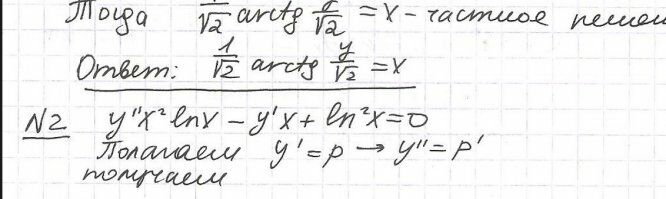 Тогда 1/√2 arctg y/√2 = x - частное решен
Ответ: 1/√2 arctg y/√2 = x
N2 y''x² lnx - y'x + ln²x = 0
Полагаем y' = p → y'' = p'
получаем